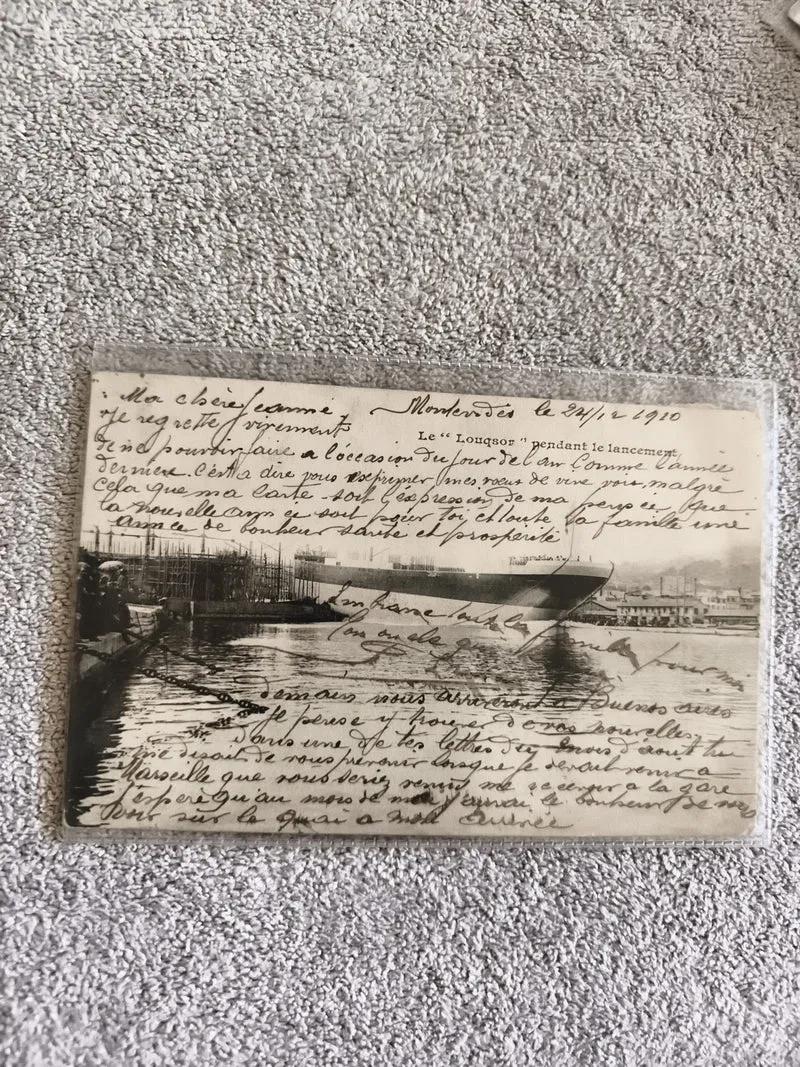 Ma chère Jeanne Montevidéo le 24/12 1910
Je regrette vivement
Le " Louqsor " pendant le lancement
de ne pouvoir faire a l'occasion du jour de l'an comme l'année
dernière. C'est a dire vous exprimer mes vœux de vive voix, malgré
cela que ma carte soit l'expression de ma pensée, que
la nouvelle année soit pour toi et toute ta famille une
année de bonheur santé et prospérité
demain nous arriverons a Buenos aires
Je pense y trouver de vos nouvelles,
dans une de tes lettres du mois d'aout tu
me disait de vous prévenir lorsque je devrait venir a
Marseille que vous seriez venu me recevoir a la gare
J'espère qu'au mois de mai j'aurai le bonheur de vous
voir sur le quai a mon arrivée